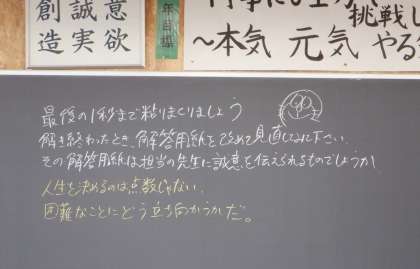 創造
誠実
意欲
年目標
挑戦し
〜本気 元気 やる
最後の1秒まで粘りまくりましょう
解き終わったとき、解答用紙を改めて見直してみて下さい。
その解答用紙は担当の先生に誠意を伝えられるものでしょうか
人生を決めるのは点数じゃない。
困難なことにどう立ち向かうかだ。